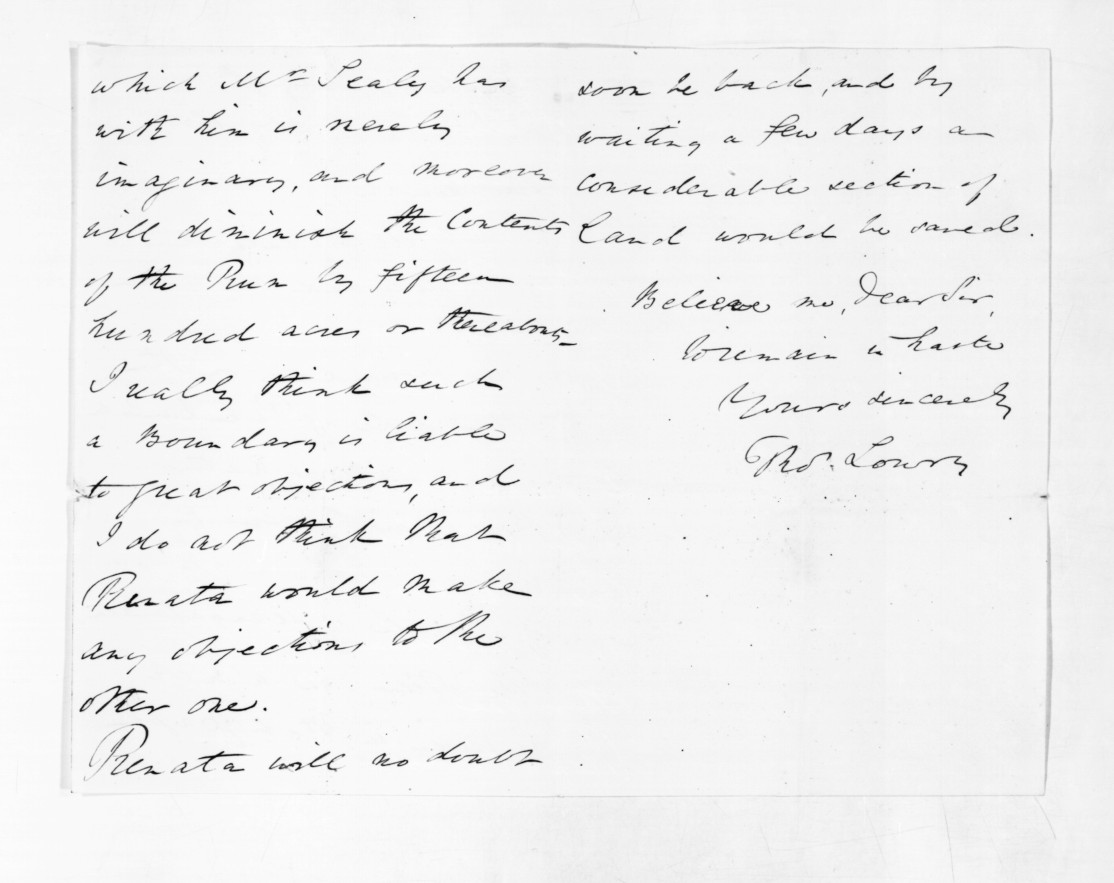 which Mr Sealy has
with him is merely
imaginary, and moreover
will diminish the Contents
of the Run by fifteen
hundred acres or thereabouts_
I really think such
a Boundary is liable
to great objections, and
I do not think that
Renata would make
any objections to the
other one.
Renata will no doubt
soon be back, and by
waiting a few days a
considerable section of
Land would be saved.
Believe me, Dear Sir,
to remain in haste
Yours sincerely
Thos. Lowry